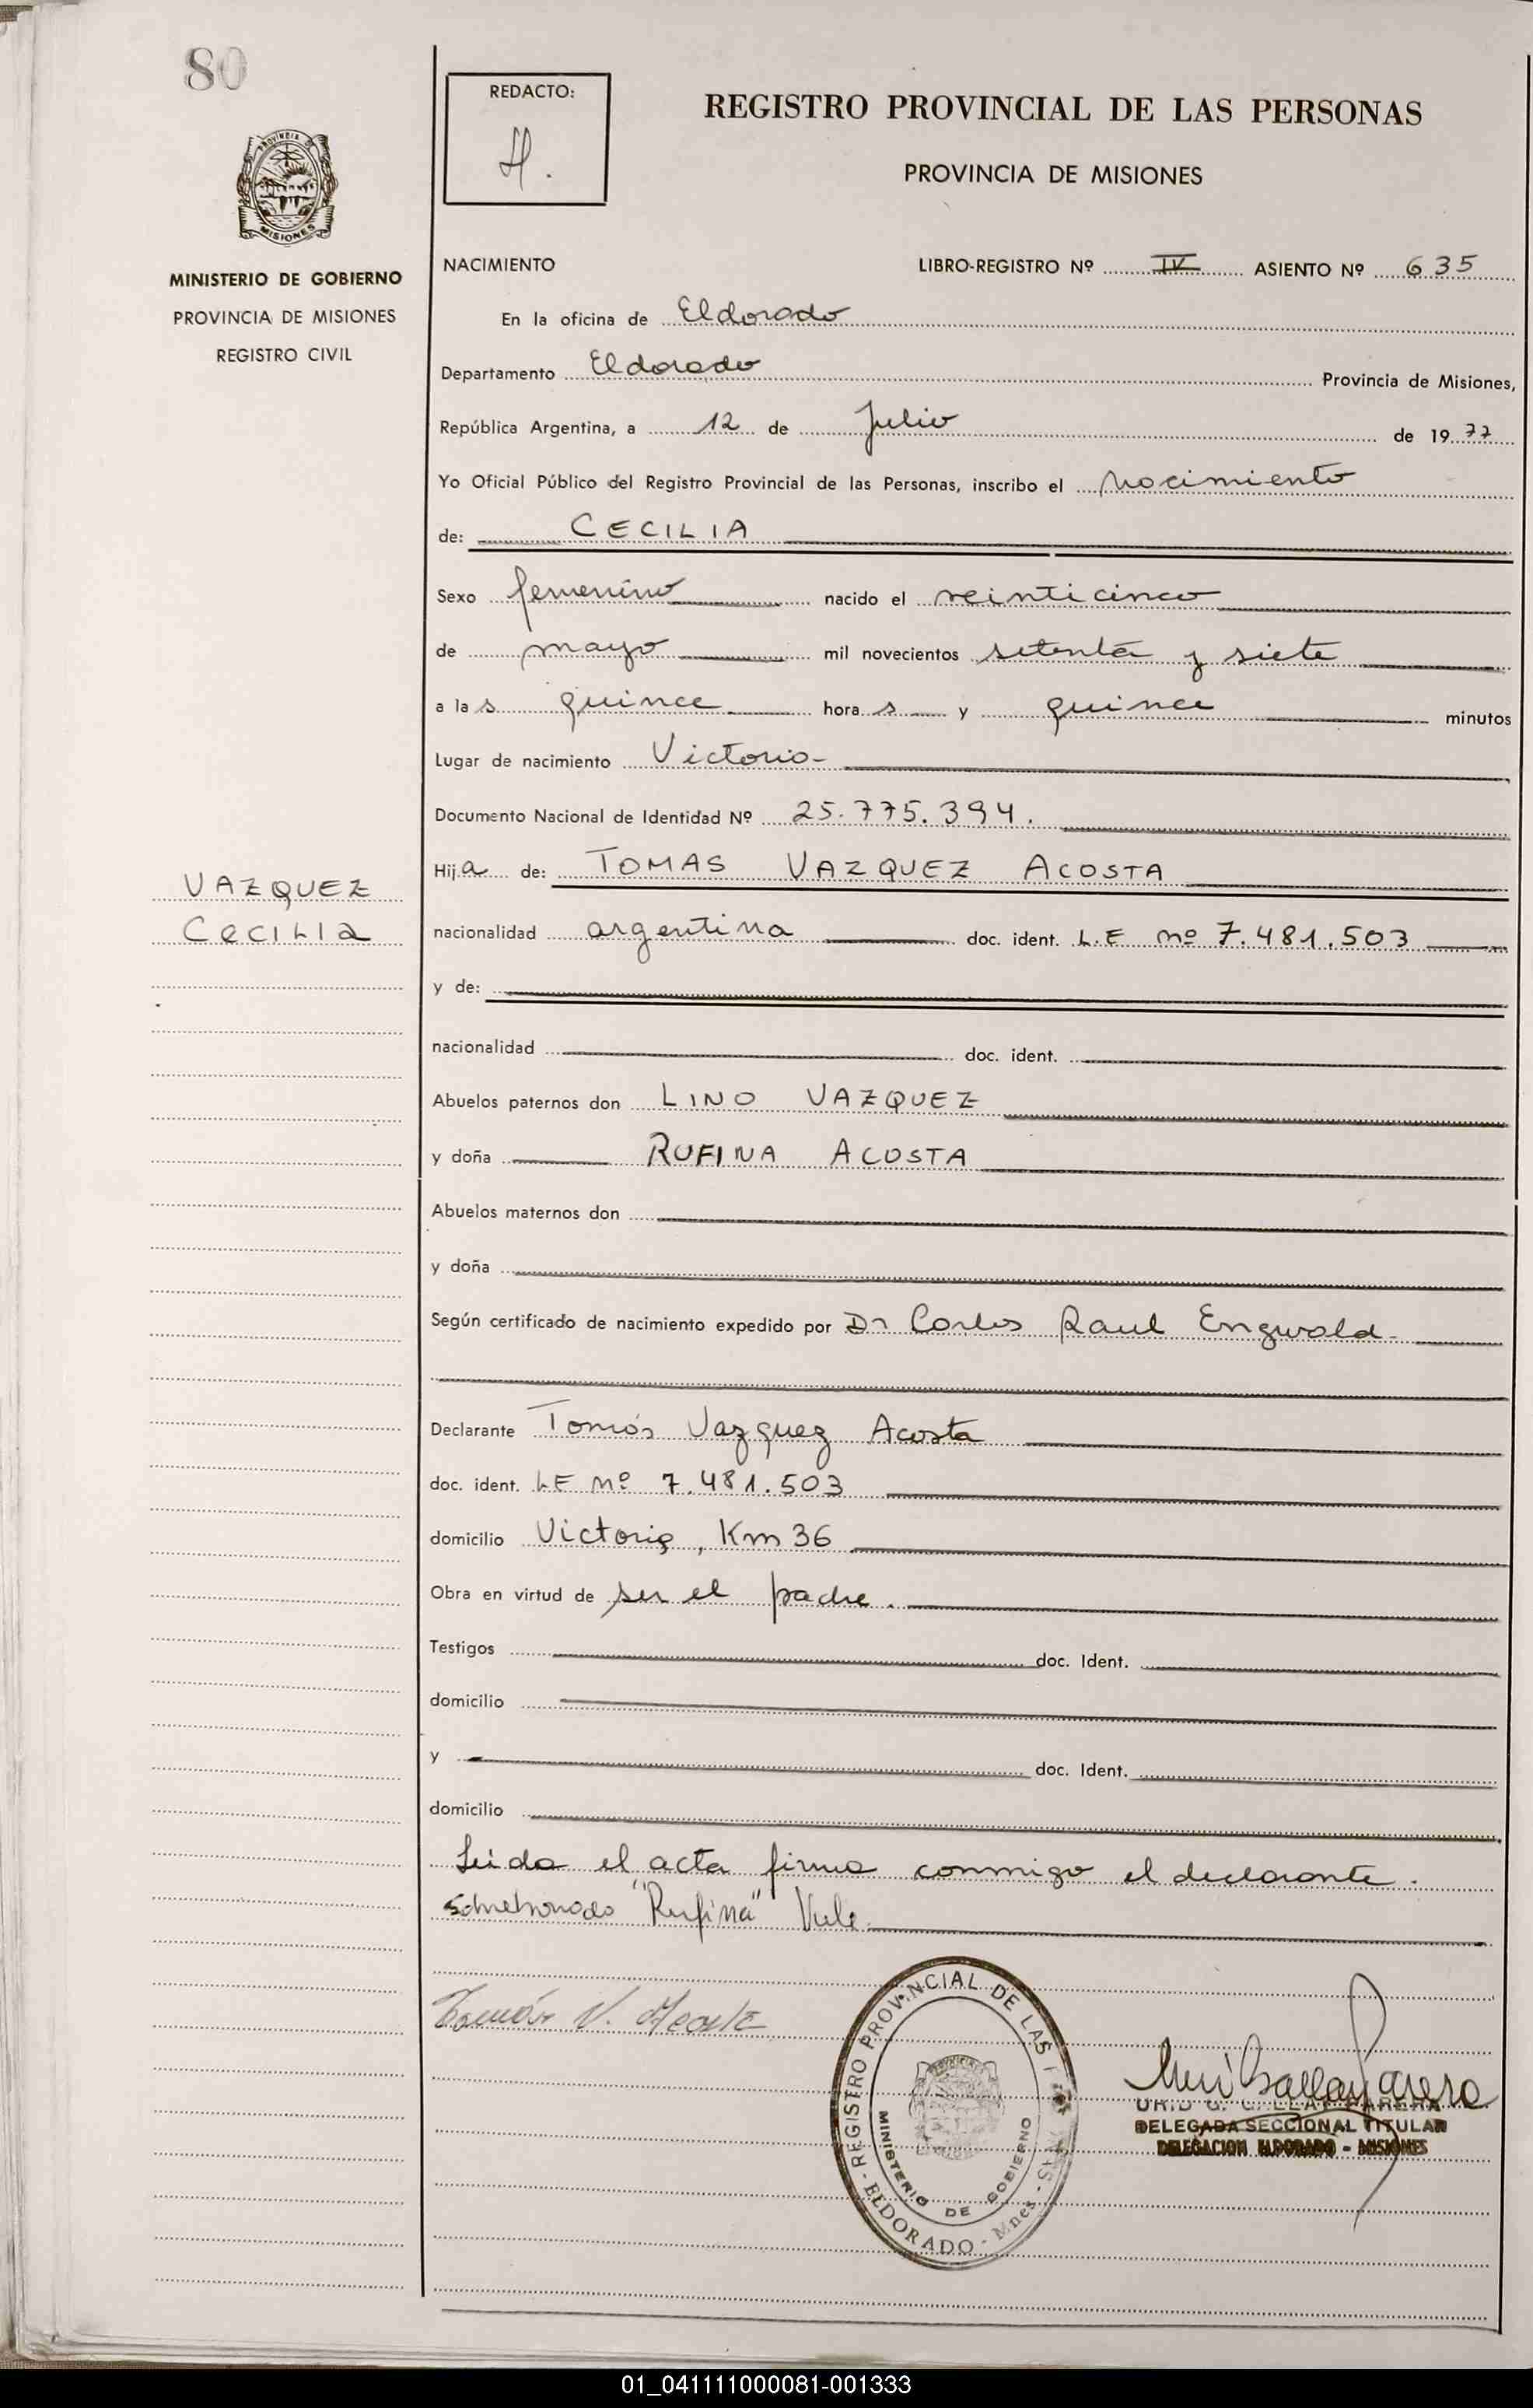 80
PROVINCIA
MISIONES
MINISTERIO DE GOBIERNO
PROVINCIA DE MISIONES
REGISTRO CIVIL
REDACTO:
H.
REGISTRO PROVINCIAL DE LAS PERSONAS
PROVINCIA DE MISIONES
NACIMIENTO LIBRO-REGISTRO Nº IV ASIENTO Nº 635
En la oficina de Eldorado
Departamento Eldorado Provincia de Misiones,
República Argentina, a 12 de Julio de 1977
Yo Oficial Público del Registro Provincial de las Personas, inscribo el nacimiento
de: CECILIA
Sexo femenino nacido el veinticinco
de mayo mil novecientos setenta y siete
a las quince horas y quince minutos
Lugar de nacimiento Victoria-
Documento Nacional de Identidad Nº 25.775.394.
Hija de: TOMAS VAZQUEZ ACOSTA
VAZQUEZ
CECILIA
nacionalidad argentina doc. ident. L.E nº 7.481.503
y de:
nacionalidad doc. ident.
Abuelos paternos don LINO VAZQUEZ
y doña RUFINA ACOSTA
Abuelos maternos don
y doña
Según certificado de nacimiento expedido por Dr Carlos Raul Engwald-
Declarante Tomás Vazquez Acosta
doc. ident. LE Nº 7.481.503
domicilio Victoria, Km 36
Obra en virtud de ser el padre.
Testigos doc. Ident.
domicilio
y doc. Ident.
domicilio
Leida el acta firma conmigo el declarante.
"Rufina" Vale
Tomás V. Acosta
REGISTRO PROVINCIAL DE LAS
MINISTERIO DE GOBIERNO
ELDORADO - Mnes.
DELEGADA SECCIONAL TITULAR
DELEGACION ELDORADO - MISIONES
01_041111000081-001333